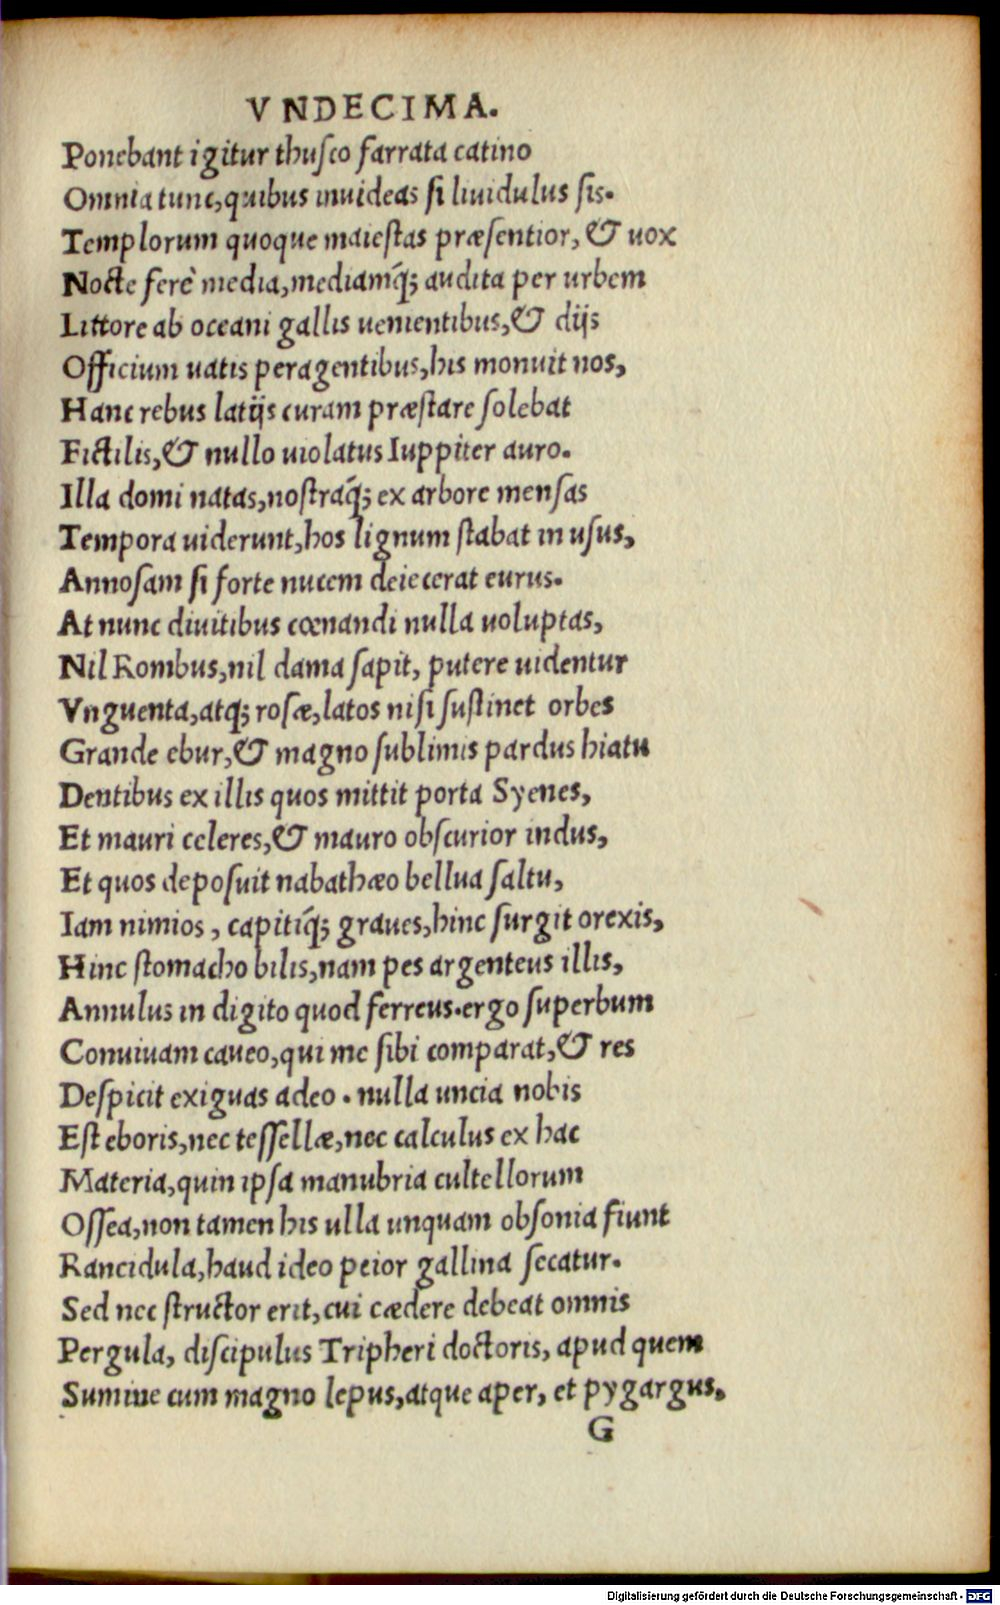 VNDECIMA.
Ponebant igitur thuſco farrata catino
Omnia tunc, quibus inuideas ſi liuidulus ſis.
Templorum quoque maieſtas præſentior, & uox
Nocte ferè media, mediamq́; audita per urbem
Littore ab oceani gallis uenientibus, & dijs
Officium uatis peragentibus, his monuit nos,
Hanc rebus latijs curam præſtare ſolebat
Fictilis, & nullo uiolatus Iuppiter auro.
Illa domi natas, noſtraq́; ex arbore menſas
Tempora uiderunt, hos lignum ſtabat in uſus,
Annoſam ſi forte nucem deiecerat eurus.
At nunc diuitibus cœnandi nulla uoluptas,
Nil Rombus, nil dama ſapit, putere uidentur
Vnguenta, atq; roſæ, latos niſi ſuſtinet orbes
Grande ebur, & magno ſublimis pardus hiatu
Dentibus ex illis quos mittit porta Syenes,
Et mauri celeres, & mauro obſcurior indus,
Et quos depoſuit nabathæo bellua ſaltu,
Iam nimios, capitiq́; graues, hinc ſurgit orexis,
Hinc ſtomacho bilis, nam pes argenteus illis,
Annulus in digito quod ferreus. ergo ſuperbum
Conuiuam caueo, qui me ſibi comparat, & res
Deſpicit exiguas adeo. nulla uncia nobis
Eſt eboris, nec teſſellæ, nec calculus ex hac
Materia, quin ipſa manubria cultellorum
Oſſea, non tamen his ulla unquam obſonia fiunt
Rancidula, haud ideo peior gallina ſecatur.
Sed nec ſtructor erit, cui cædere debeat omnis
Pergula, diſcipulus Tripheri doctoris, apud quem
Sumine cum magno lepus, atque aper, et pygargus,
G
Digitalisierung gefördert durch die Deutsche Forschungsgemeinschaft - DFG